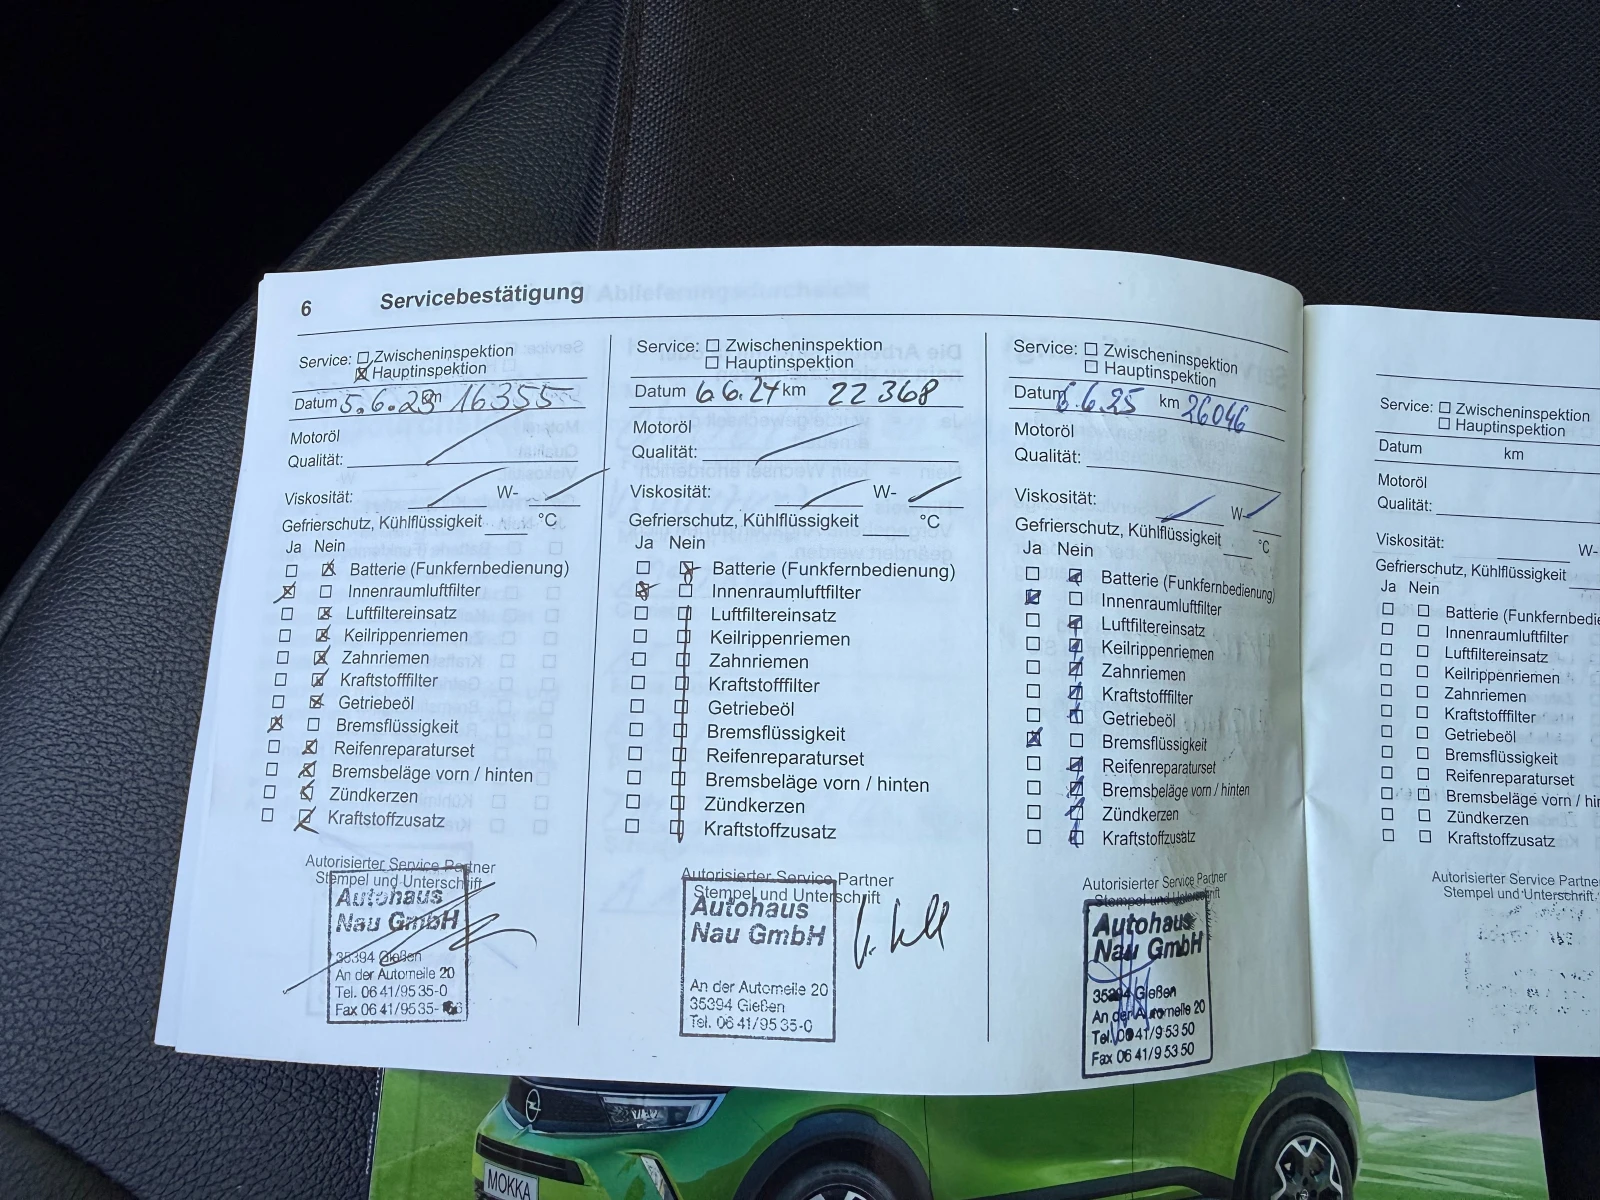 6 Servicebestätigung
Service: ☐ Zwischeninspektion
☒ Hauptinspektion
Datum 5.6.23 km 16355
Motoröl
Qualität:
Viskosität: W-
Gefrierschutz, Kühlflüssigkeit °C
Ja Nein
☐ ☒ Batterie (Funkfernbedienung)
☒ ☐ Innenraumluftfilter
☐ ☒ Luftfiltereinsatz
☐ ☒ Keilrippenriemen
☐ ☒ Zahnriemen
☐ ☒ Kraftstofffilter
☐ ☒ Getriebeöl
☒ ☐ Bremsflüssigkeit
☐ ☒ Reifenreparaturset
☐ ☒ Bremsbeläge vorn / hinten
☐ ☒ Zündkerzen
☐ ☒ Kraftstoffzusatz
Autorisierter Service Partner
Stempel und Unterschrift
Autohaus
Nau GmbH
35394 Gießen
An der Automeile 20
Tel. 06 41/95 35-0
Fax 06 41/95 35-
Service: ☐ Zwischeninspektion
☐ Hauptinspektion
Datum 6.6.24 km 22368
Motoröl
Qualität:
Viskosität: W-
Gefrierschutz, Kühlflüssigkeit °C
Ja Nein
☐ ☒ Batterie (Funkfernbedienung)
☒ ☐ Innenraumluftfilter
☐ ☐ Luftfiltereinsatz
☐ ☐ Keilrippenriemen
☐ ☐ Zahnriemen
☐ ☐ Kraftstofffilter
☐ ☐ Getriebeöl
☐ ☐ Bremsflüssigkeit
☐ ☐ Reifenreparaturset
☐ ☐ Bremsbeläge vorn / hinten
☐ ☐ Zündkerzen
☐ ☐ Kraftstoffzusatz
Autorisierter Service Partner
Stempel und Unterschrift
Autohaus
Nau GmbH
An der Automeile 20
35394 Gießen
Tel. 06 41/95 35-0
Service: ☐ Zwischeninspektion
☐ Hauptinspektion
Datum 6.6.25 km 26046
Motoröl
Qualität:
Viskosität: W-
Gefrierschutz, Kühlflüssigkeit °C
Ja Nein
☐ ☒ Batterie (Funkfernbedienung)
☒ ☐ Innenraumluftfilter
☐ ☒ Luftfiltereinsatz
☐ ☒ Keilrippenriemen
☐ ☒ Zahnriemen
☐ ☒ Kraftstofffilter
☐ ☒ Getriebeöl
☒ ☐ Bremsflüssigkeit
☐ ☒ Reifenreparaturset
☐ ☒ Bremsbeläge vorn / hinten
☐ ☒ Zündkerzen
☐ ☒ Kraftstoffzusatz
Autorisierter Service Partner
Stempel und Unterschrift
Autohaus
Nau GmbH
35394 Gießen
An der Automeile 20
Tel. 06 41/9 53 50
Fax 06 41/9 53 50
Service: ☐ Zwischeninspektion
☐ Hauptinspektion
Datum km
Motoröl
Qualität:
Viskosität: W-
Gefrierschutz, Kühlflüssigkeit
Ja Nein
☐ ☐ Batterie (Funkfernbedie
☐ ☐ Innenraumluftfilter
☐ ☐ Luftfiltereinsatz
☐ ☐ Keilrippenriemen
☐ ☐ Zahnriemen
☐ ☐ Kraftstofffilter
☐ ☐ Getriebeöl
☐ ☐ Bremsflüssigkeit
☐ ☐ Reifenreparaturset
☐ ☐ Bremsbeläge vorn / hin
☐ ☐ Zündkerzen
☐ ☐ Kraftstoffzusatz
Autorisierter Service Partne
Stempel und Unterschrift
MOKKA